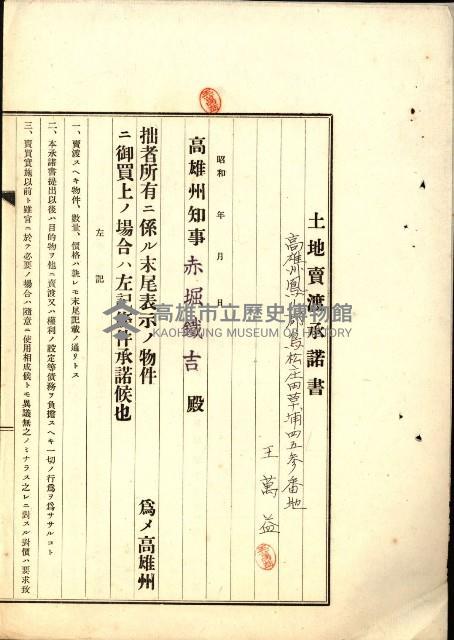 土地賣渡承諾書
高雄州鳳山郡鳥松庄田草埔四五參番地
王萬益
昭和　年　月　日
高雄州知事赤堀鐵吉　殿
為メ高雄州
拙者所有ニ係ル末尾表示ノ物件
ニ御買上ノ場合ハ左記條件承諾候也
左記
一、賣渡スヘキ物件、數量、價格ハ訣レモ末尾記載ノ通リトス
二、本承諾書提出以後ハ目的物ヲ他ニ賣渡又ハ權利ノ設定等債務ヲ負擔スヘキ一切ノ行爲ヲ爲ササルコト
三、賣買實施以前ト雖官ニ於テ必要ノ場合ハ隨意ニ使用相成候トモ異議無之ノミナラス之レニ對スル對價ハ要求致
高雄市立歷史博物館
KAOHSIUNG MUSEUM OF HISTORY